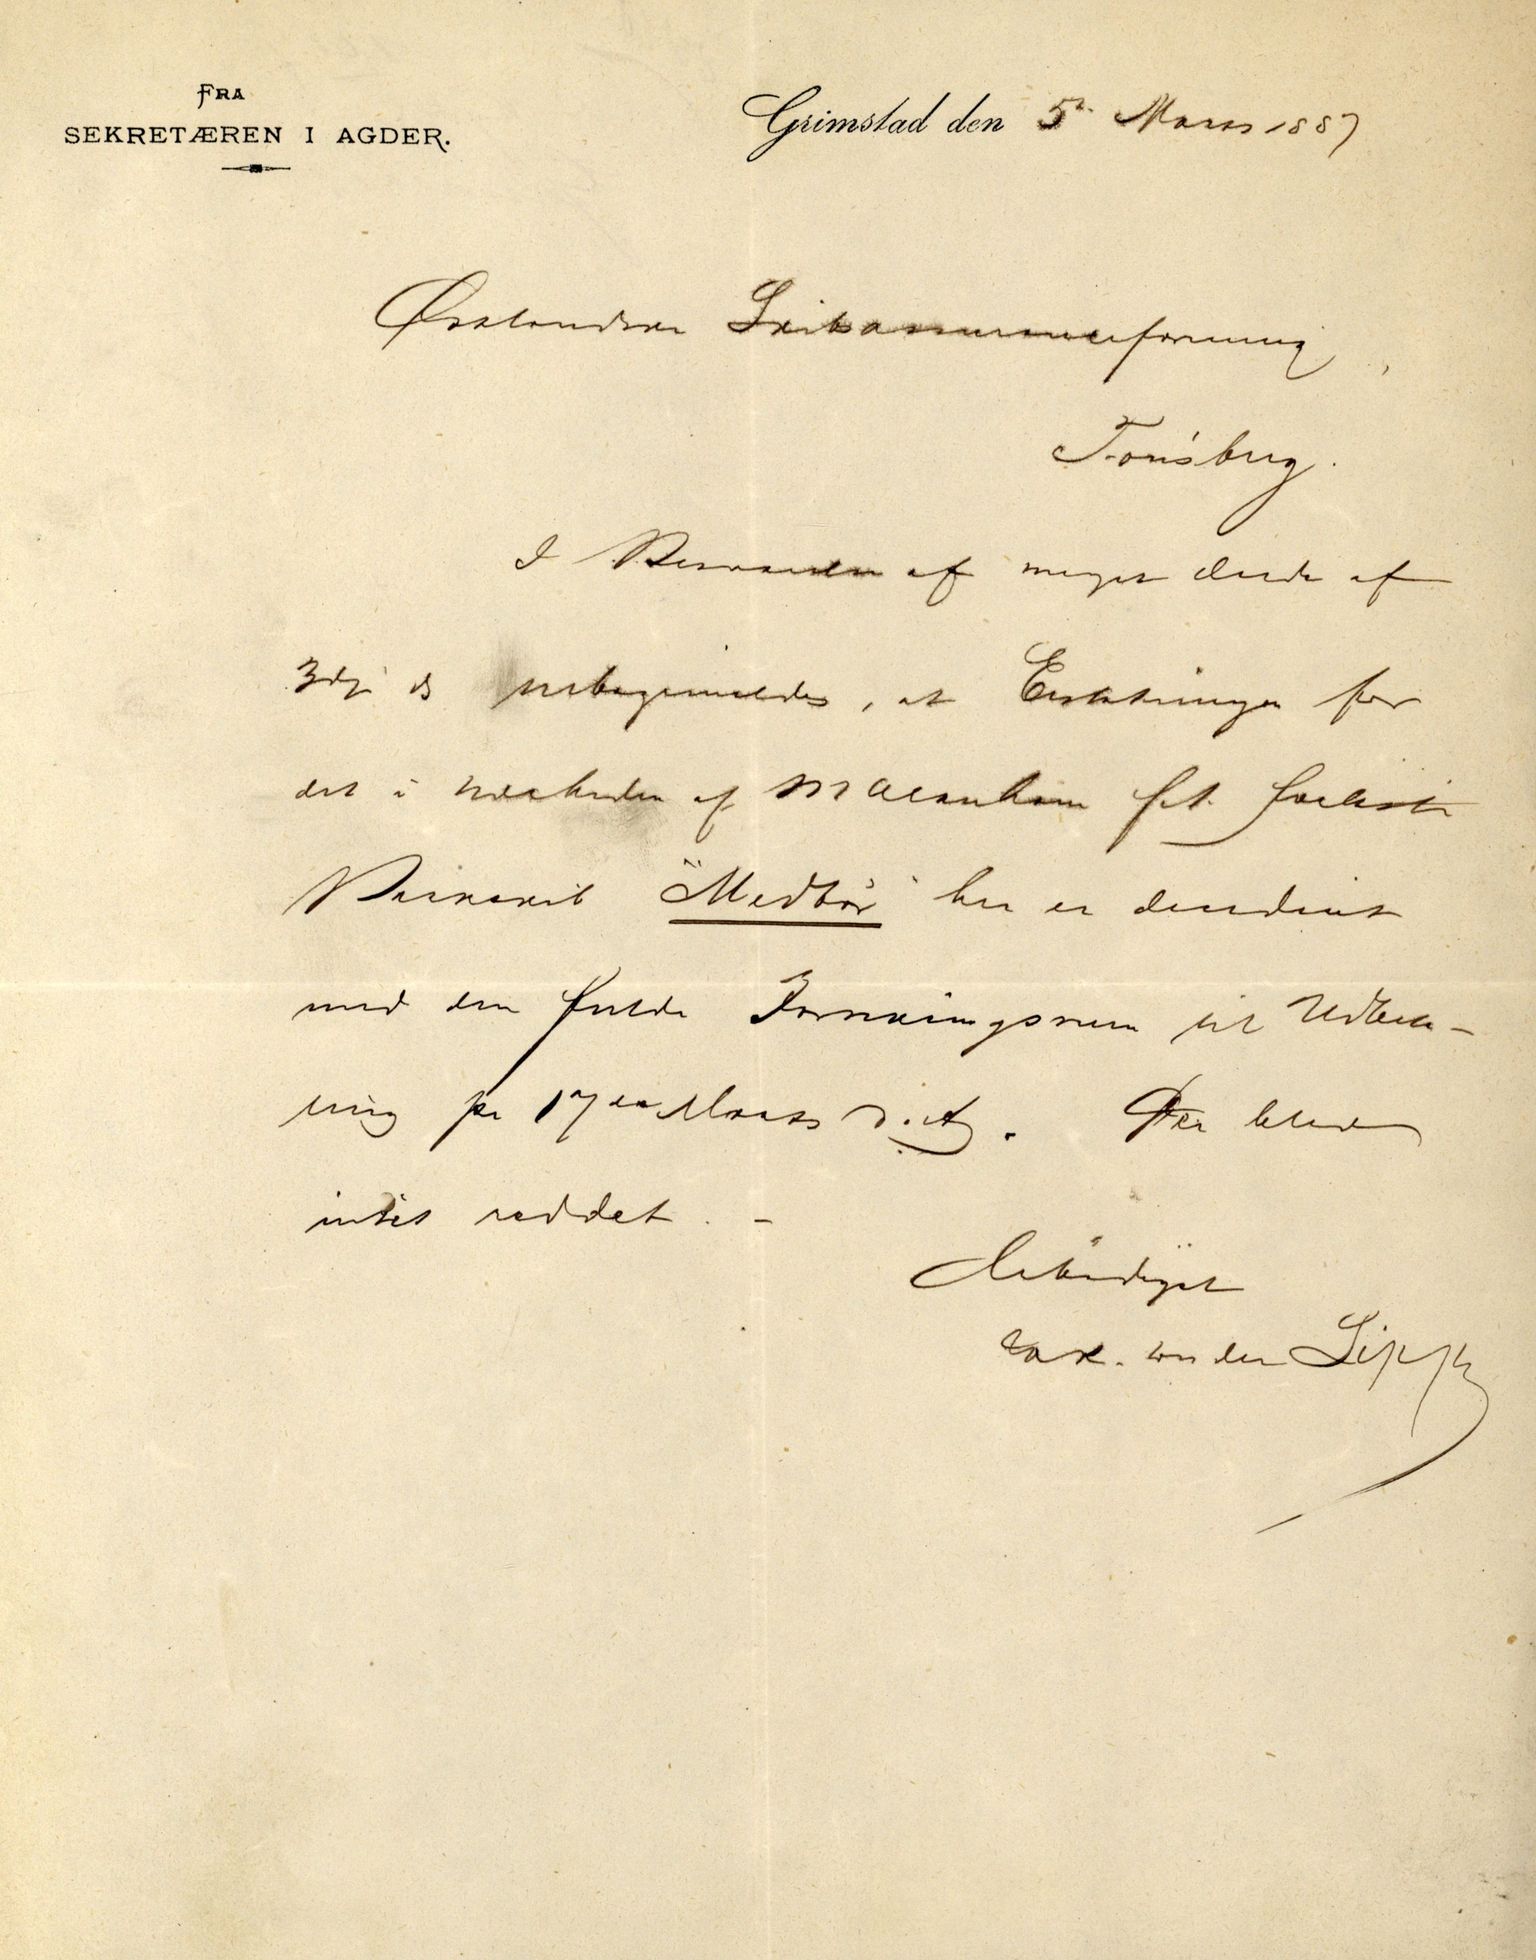 FRA
SEKRETÆREN I AGDER.
Grimstad den 5te Marts 1887
Østlandske Skibsassuranceforening,
Tønsberg.
I Besvarelse af meget ærede af
3dj ds tilbagemeldes, at Erstatningen for
det i Nærheden af Maranham forliste
Barkskib "Medbør" her er
med den fulde Forsikringssum til Udbeta-
ling pr 17de Marts d. A. Der blev
intet reddet. -
Ærbødigst
von der Lippe